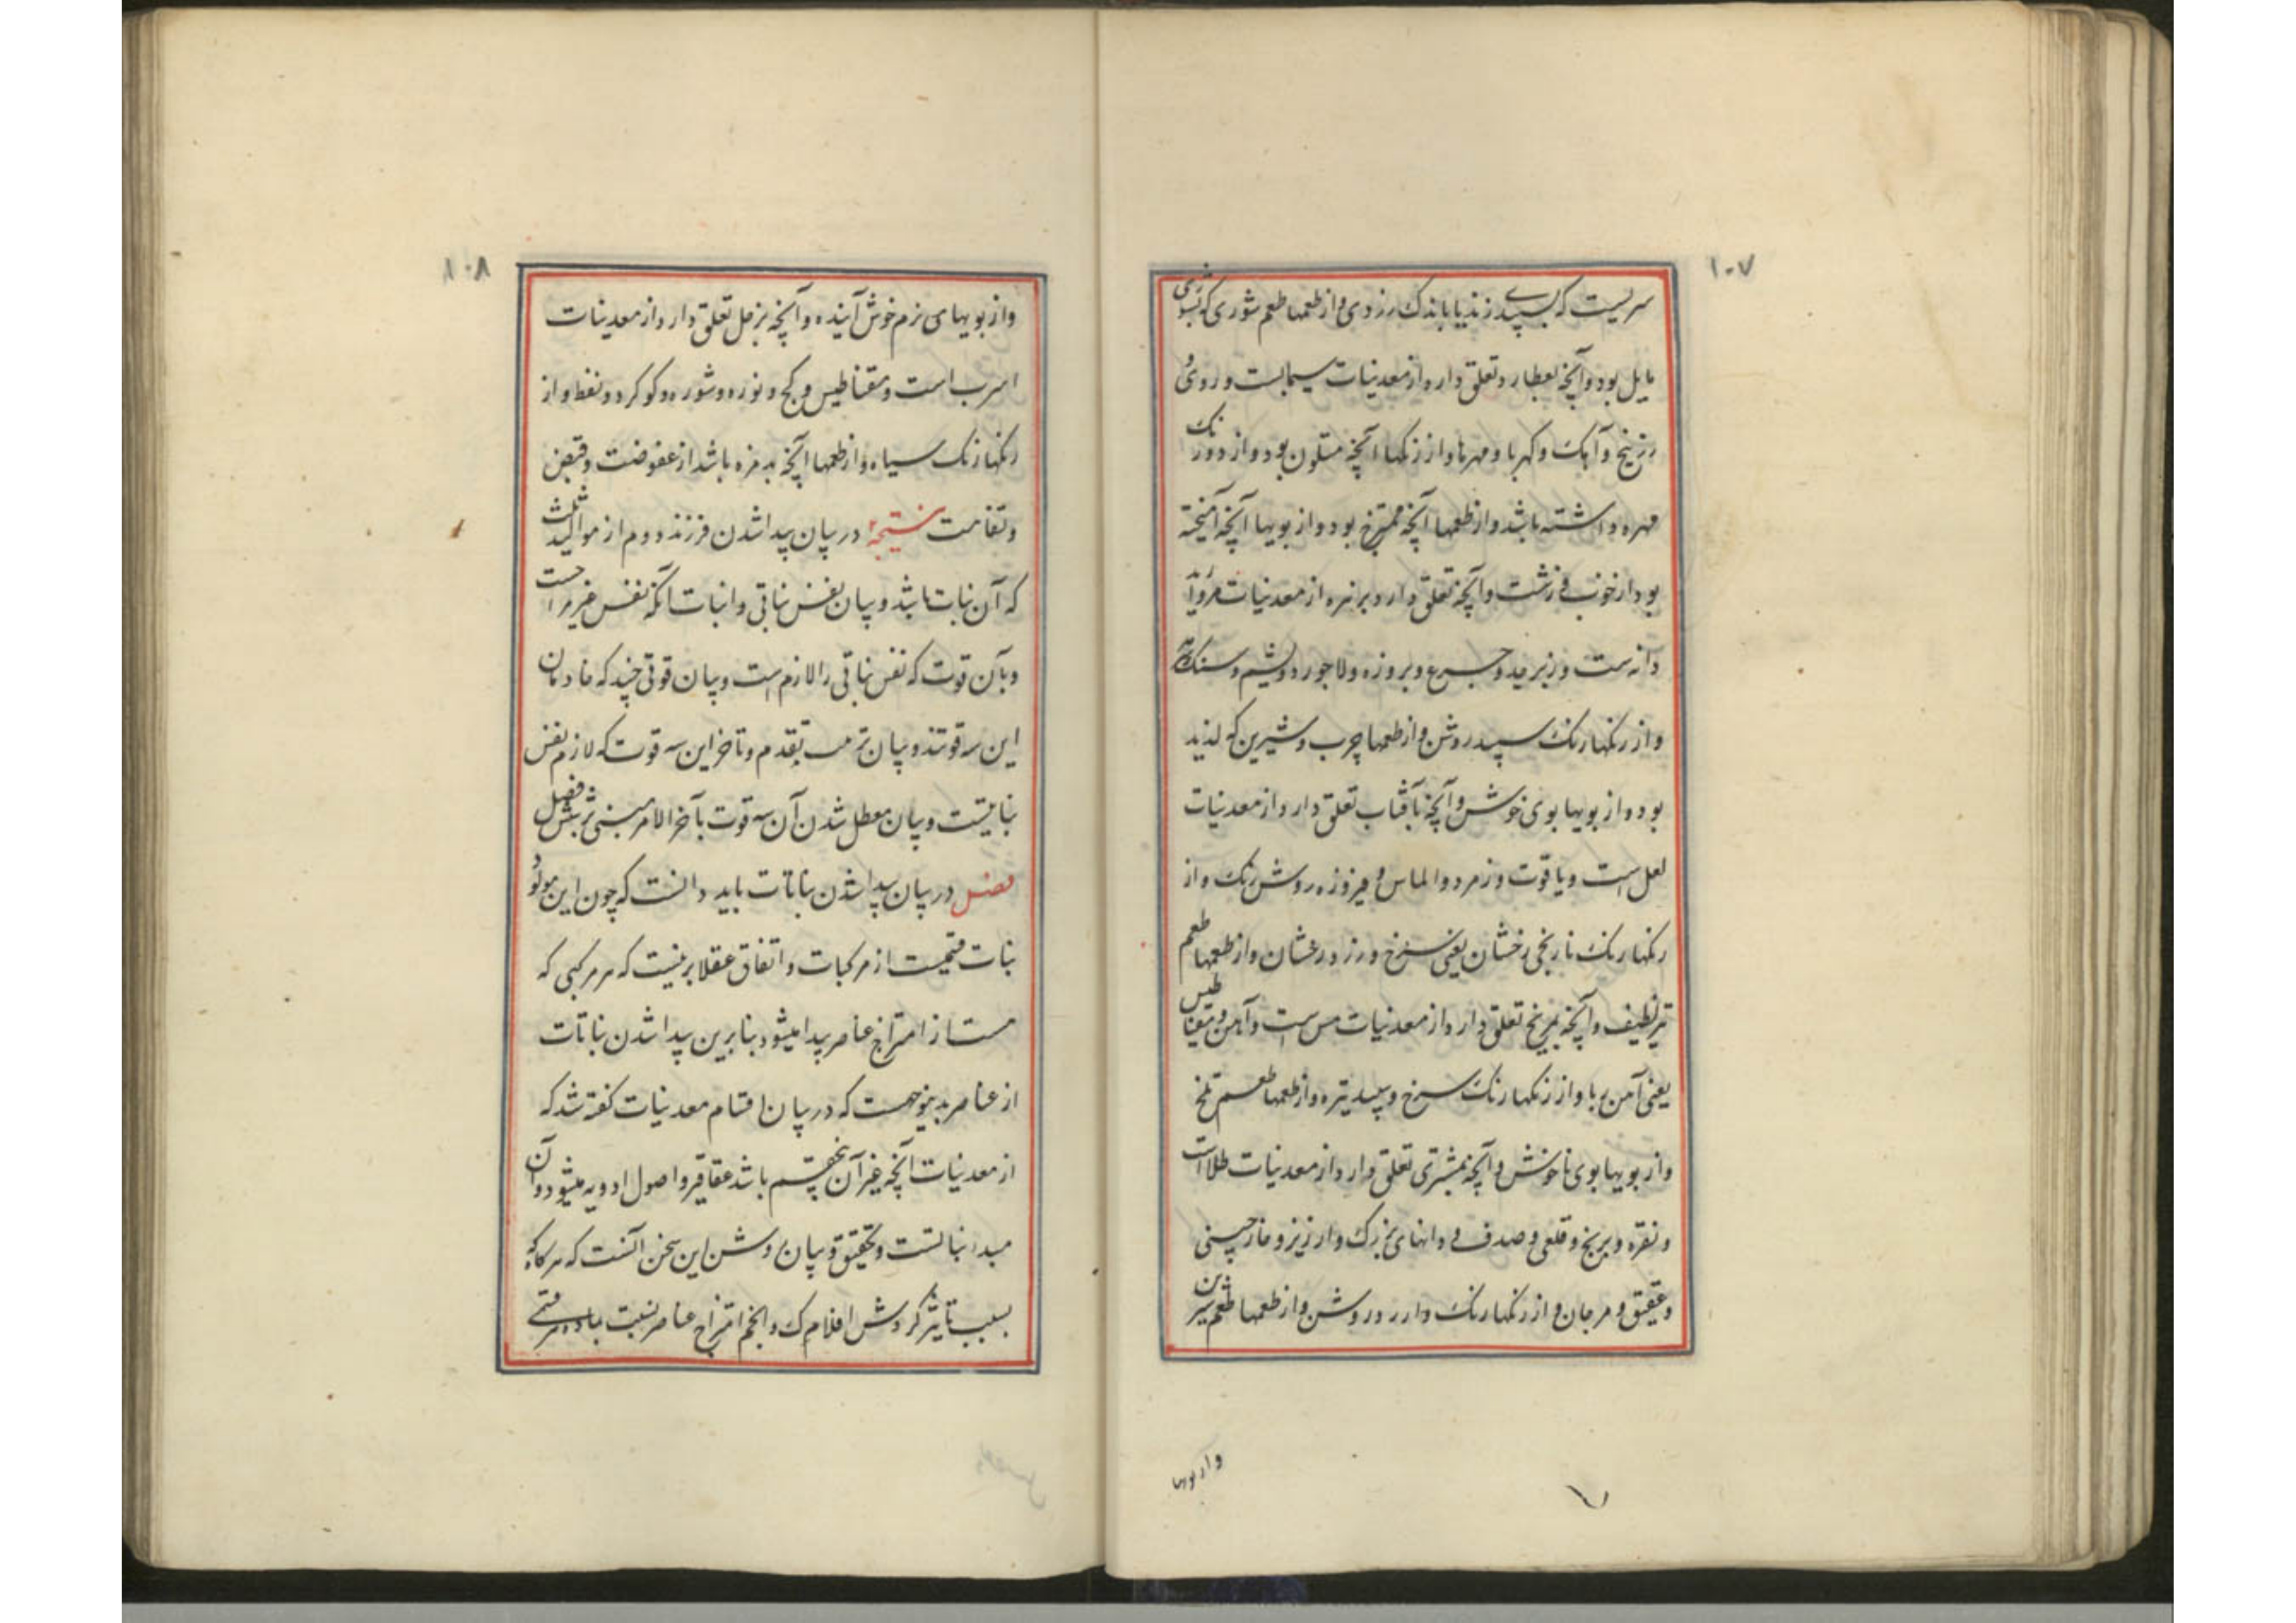 ۱۰۷
سرنیست که بسپیدی زند یا باندک زردی و از طعمها طعم شوری که بشوری
مایل بود و آنچه بعطارد تعلق دارد از معدنیات سیمابست و روی و
زرنیخ و آهک و کهربا و مهرها و از رنگها آنچه متلون بود و از دور رنگ
مهره داشته باشد و از طعمها آنچه ممتزج بود و از بویها آنچه آمیخته
بود از خوب و زشت و آنچه تعلق دارد بزهره از معدنیات مروارید
دانه ست و زبرجد و جزع و بروزه و لاجورد و یشم و سنک
و از رنگها رنک سپید روشن و از طعمها چرب و شیرین که لذیذ
بود و از بویها بوی خوش و آنچه بآفتاب تعلق دارد از معدنیات
لعل است و یاقوت و زمرد و الماس و فیروزه روشن رنک و از
رنگها رنک نارنجی رخشان یعنی سرخ و زرد رخشان و از طعمها طعم
تیز لطیف و آنچه بمریخ تعلق دارد از معدنیات مس است و آهن و مقناطیس
یعنی آهن ربا و از رنگها رنک سرخ و سپید تیره و از طعمها طعم تلخ
و از بویها بوی ناخوش و آنچه بمشتری تعلق دارد از معدنیات طلا است
و نقره و برنج و قلعی و صدف و دانهای بزرک و ارزیز و خارچینی
و عقیق و مرجان و از رنگها رنک زرد روشن و از طعمها طعم شیرین
و از بویها
۱۰۸
و از بویهای نرم خوش آینده و آنچه بزحل تعلق دارد از معدنیات
اسرب است و مقناطیس و کج و نوره و شوره و کوکرد و نفط و از
رنگها رنک سیاه و از طعمها آنچه بدمزه باشد از عفوصت و قبض
و تفاهت نتیجهٔ در بیان پیدا شدن فرزند دوم از موالید ثلث
که آن نبات باشد و بیان نفس نباتی و اثبات آنکه نفس غیر مزاجست
و بآن قوت که نفس نباتی را لازم است و بیان قوتی چند که خادمان
این سه قوتند و بیان ترتیب تقدم و تاخر این سه قوت که لازم نفس
نباتیست و بیان معطل شدن آن سه قوت بآخر الامر مبنی بر شش فصل
فصل در بیان پیدا شدن نباتات باید دانست که چون این مولود
نبات قسمیست از مرکبات و اتفاق عقلا برینست که هر مرکبی که
هست از امتزاج عناصر پیدا میشود بنابرین پیدا شدن نباتات
از عناصر بدینوجهست که در بیان اقسام معدنیات گفته شد که
از معدنیات آنچه غیر آن پنج قسم باشد عقاقیر و اصول ادویه میشود و آن
مبدا نباتست و تحقیق و بیان روشن این سخن آنست که هرگاه که
بسبب تاثیر کردش افلاک و انجم امتزاج عناصر نسبت